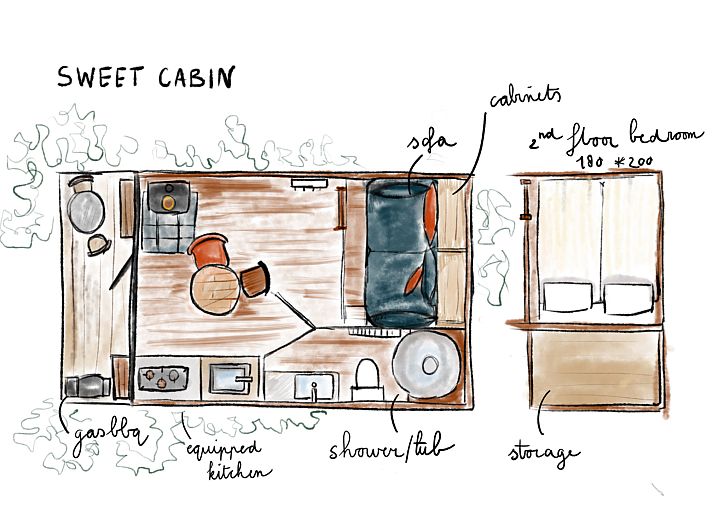 SWEET CABIN
cabinets
sofa
2nd floor bedroom
180 *200
gasbbq
equipped
kitchen
shower/tub
storage